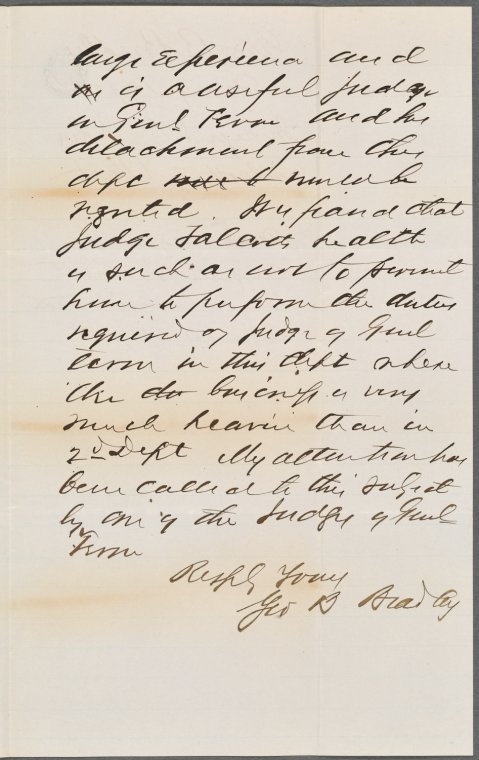 large experience and
is a useful Judge
in Genl Term and his
detachment from this
dept would be
regretted. It is feared that
Judge Talcotts health
is such as not to permit
him to perform the duties
required of Judge of Genl
Term in this dept where
the business is very
much heavier than in
2d Dept My attention has
been called to this subject
by one of the Judges of Genl
Term
Respfly Yours
Geo B Bradley